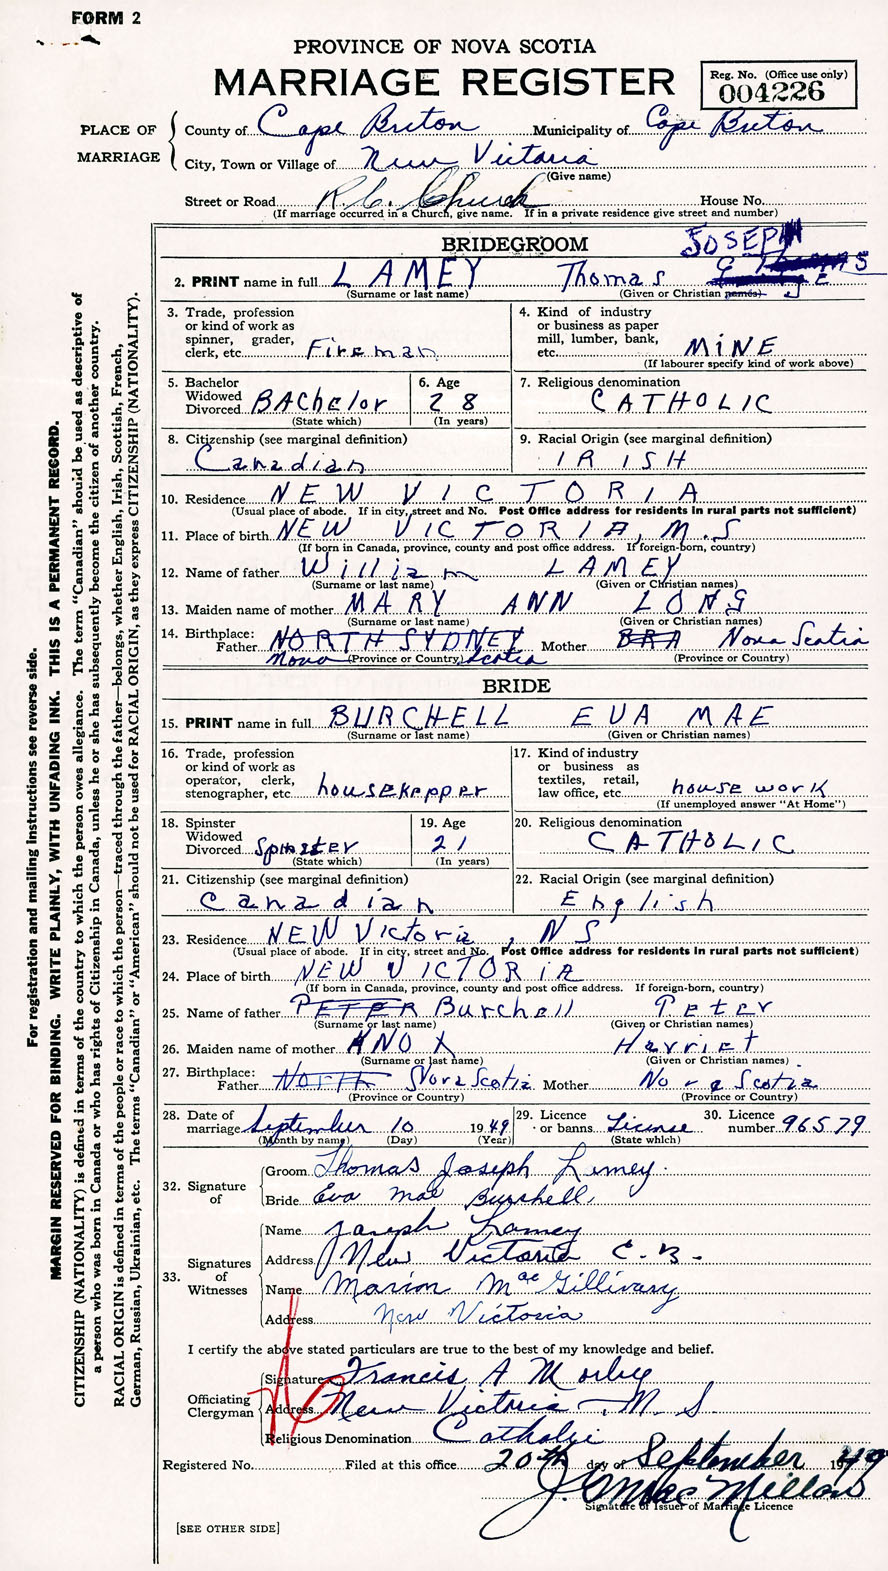 FORM 2
PROVINCE OF NOVA SCOTIA
MARRIAGE REGISTER
Reg. No. (Office use only)
004226
PLACE OF MARRIAGE
County of Cape Breton Municipality of Cape Breton
City, Town or Village of New Victoria
(Give name)
Street or Road R.C. Church House No.
(If marriage occurred in a Church, give name. If in a private residence give street and number)
BRIDEGROOM
JOSEPH
2. PRINT name in full LAMEY Thomas
(Surname or last name) (Given or Christian names)
3. Trade, profession or kind of work as spinner, grader, clerk, etc. Fireman
4. Kind of industry or business as paper mill, lumber, bank, etc. MINE
(If labourer specify kind of work above)
5. Bachelor Widowed Divorced BAchelor
(State which)
6. Age 28
(In years)
7. Religious denomination
CATHOLIC
8. Citizenship (see marginal definition)
Canadian
9. Racial Origin (see marginal definition)
IRISH
10. Residence NEW VICTORIA
(Usual place of abode. If in city, street and No. Post Office address for residents in rural parts not sufficient)
11. Place of birth NEW VICTORIA, N.S
(If born in Canada, province, county and post office address. If foreign-born, country)
12. Name of father William LAMEY
(Surname or last name) (Given or Christian names)
13. Maiden name of mother MARY ANN LONG
(Surname or last name) (Given or Christian names)
14. Birthplace:
Father NORTH SYDNEY Mother BRA Nova Scotia
Nova Scotia
(Province or Country) (Province or Country)
BRIDE
15. PRINT name in full BURCHELL EVA MAE
(Surname or last name) (Given or Christian names)
16. Trade, profession or kind of work as operator, clerk, stenographer, etc. housekepper
17. Kind of industry or business as textiles, retail, law office, etc. house work
(If unemployed answer "At Home")
18. Spinster Widowed Divorced Spinster
(State which)
19. Age 21
(In years)
20. Religious denomination
CATHOLIC
21. Citizenship (see marginal definition)
Canadian
22. Racial Origin (see marginal definition)
English
23. Residence NEW Victoria, NS
(Usual place of abode. If in city, street and No. Post Office address for residents in rural parts not sufficient)
24. Place of birth NEW VICTORIA
(If born in Canada, province, county and post office address. If foreign-born, country)
25. Name of father PETER Burchell Peter
(Surname or last name) (Given or Christian names)
26. Maiden name of mother KNOX Harriet
(Surname or last name) (Given or Christian names)
27. Birthplace:
Father North Nova Scotia Mother Nova Scotia
(Province or Country) (Province or Country)
28. Date of marriage September 10 1949
(Month by name) (Day) (Year)
29. Licence or banns License
(State which)
30. Licence number 96579
32. Signature of
Groom Thomas Joseph Lamey.
Bride Eva Mae Burchell.
33. Signatures of Witnesses
Name Joseph Lamey
Address New Victoria C.B.
Name Marion MacGillivary
Address New Victoria
I certify the above stated particulars are true to the best of my knowledge and belief.
Officiating Clergyman
Signature Francis A Morley
Address New Victoria N S
Religious Denomination Catholic
Registered No. Filed at this office 20th day of September 1949
J. C. MacMillan
Signature of Issuer of Marriage Licence
[SEE OTHER SIDE]
For registration and mailing instructions see reverse side.
MARGIN RESERVED FOR BINDING. WRITE PLAINLY, WITH UNFADING INK. THIS IS A PERMANENT RECORD.
CITIZENSHIP (NATIONALITY) is defined in terms of the country to which the person owes allegiance. The term "Canadian" should be used as descriptive of
a person who was born in Canada or who has rights of Citizenship in Canada, unless he or she has subsequently become the citizen of another country.
RACIAL ORIGIN is defined in terms of the people or race to which the person—traced through the father—belongs, whether English, Irish, Scottish, French,
German, Russian, Ukrainian, etc. The terms "Canadian" or "American" should not be used for RACIAL ORIGIN, as they express CITIZENSHIP (NATIONALITY).